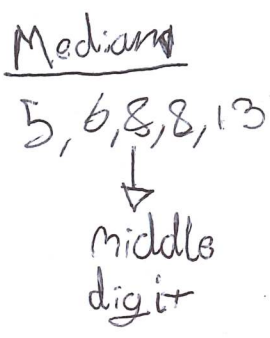 Median
5, 6, 8, 8, 13
middle
digit